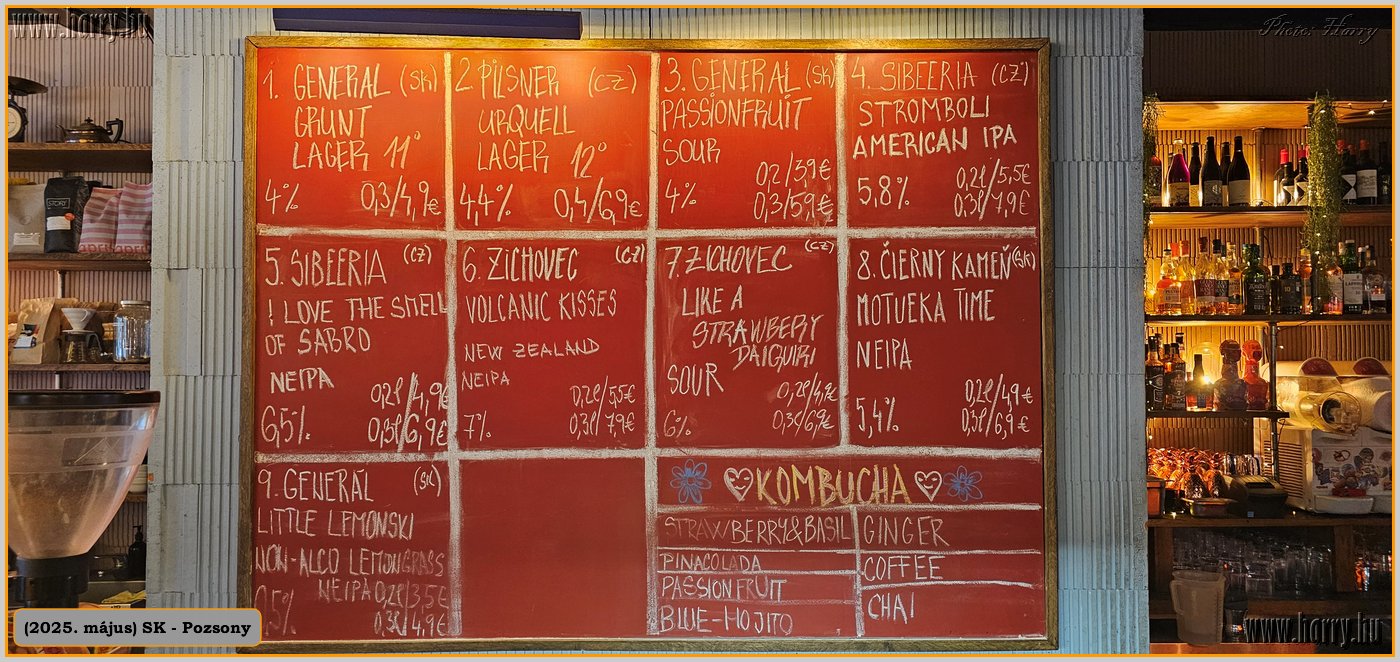 www.horry.hu
Photo: Horry
1. GENERAL (SK)
GRUNT
LAGER 11°
4% 0,3/4,9€
2 PILSNER (CZ)
URQUELL
LAGER 12°
4,4% 0,4/6,9€
3. GENERAL (SK)
PASSIONFRUIT
SOUR
0,2/3,9€
4% 0,3/5,9€
4. SIBEERIA (CZ)
STROMBOLI
AMERICAN IPA
5,8% 0,2l/5,5€
0,3l/7,9€
5. SIBEERIA (CZ)
! LOVE THE SMELL
OF SABRO
NEIPA 0,2l/4,9€
6,5% 0,3l/6,9€
6. ZICHOVEC (CZ)
VOLCANIC KISSES
NEW ZEALAND
NEIPA 0,2l/5,5€
7% 0,3l/7,9€
7. ZICHOVEC (CZ)
LIKE A
STRAWBERY
DAIQUIRI
SOUR 0,2l/4,9€
6% 0,3l/6,9€
8. ČIERNY KAMEŇ (SK)
MOTUEKA TIME
NEIPA
0,2l/4,9€
5,4% 0,3l/6,9€
9. GENERÁL (SK)
LITTLE LEMONSKI
NON-ALCO LEMONGRASS
NEIPA 0,2l/3,5€
0,5% 0,3l/4,9€
KOMBUCHA
STRAWBERRY&BASIL
PINACOLADA
PASSION FRUIT
BLUE-MOJITO
GINGER
COFFEE
CHAI
STORY
(2025. május) SK - Pozsony
www.horry.hu